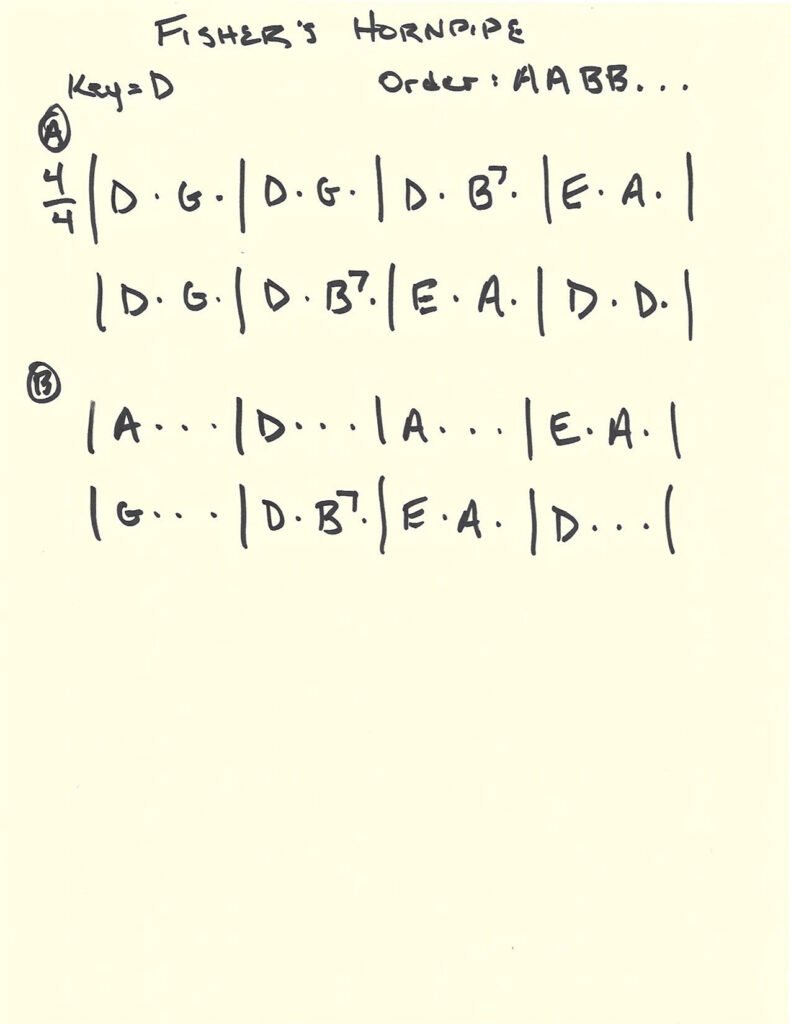 FISHER'S HORNPIPE
Key = D Order: AABB...
A
4/4 | D . G . | D . G . | D . B7 . | E . A . |
| D . G . | D . B7 . | E . A . | D . D . |
B
| A . . . | D . . . | A . . . | E . A . |
| G . . . | D . B7 . | E . A . | D . . . |